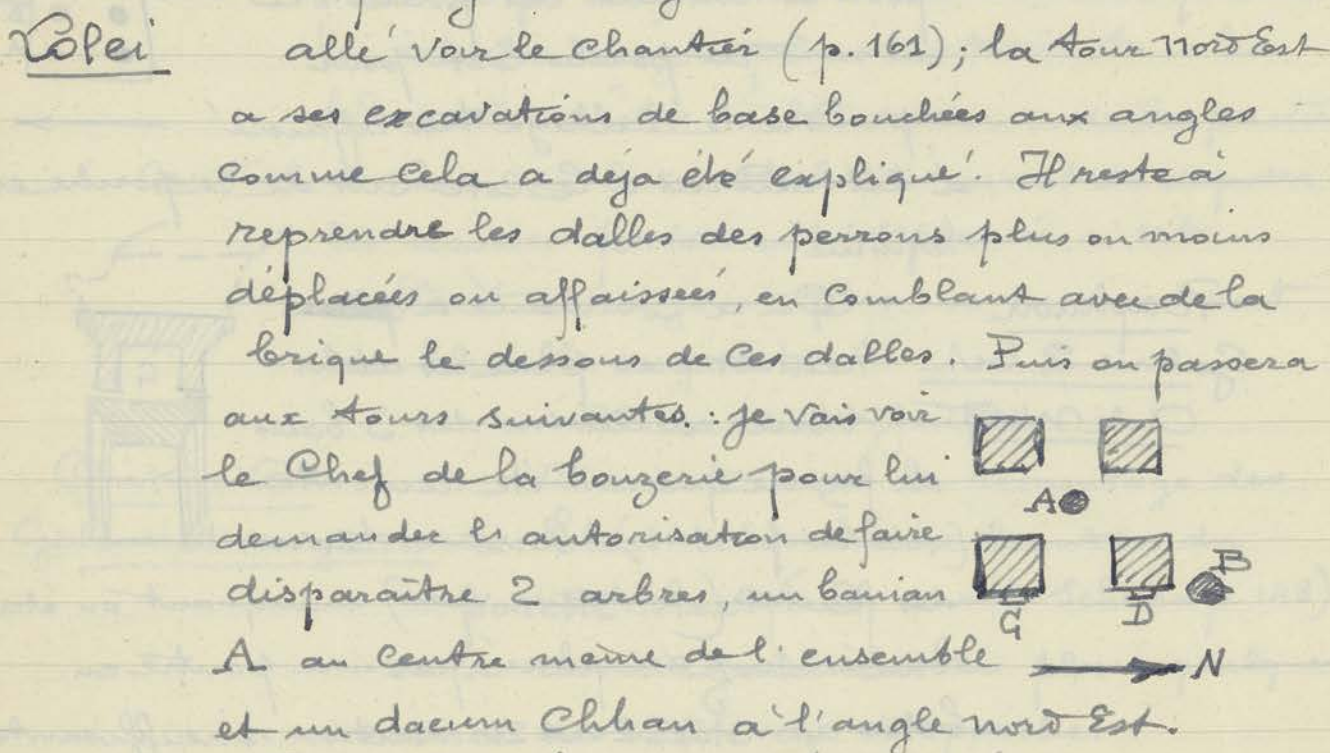 Lolei allé voir le chantier (p. 161); la tour Nord Est
a ses excavations de base bouchées aux angles
comme cela a déja été expliqué. Il reste à
reprendre les dalles des perrons plus ou moins
déplacées ou affaissées, en comblant avec de la
brique le dessous de ces dalles. Puis on passera
aux tours suivantes. : je vais voir
le Chef de la bonzerie pour lui
demander l'autorisation de faire
disparaître 2 arbres, un banian
A au centre même de l'ensemble
et un dacum Chhan à l'angle nord Est.
A
B
G D
N